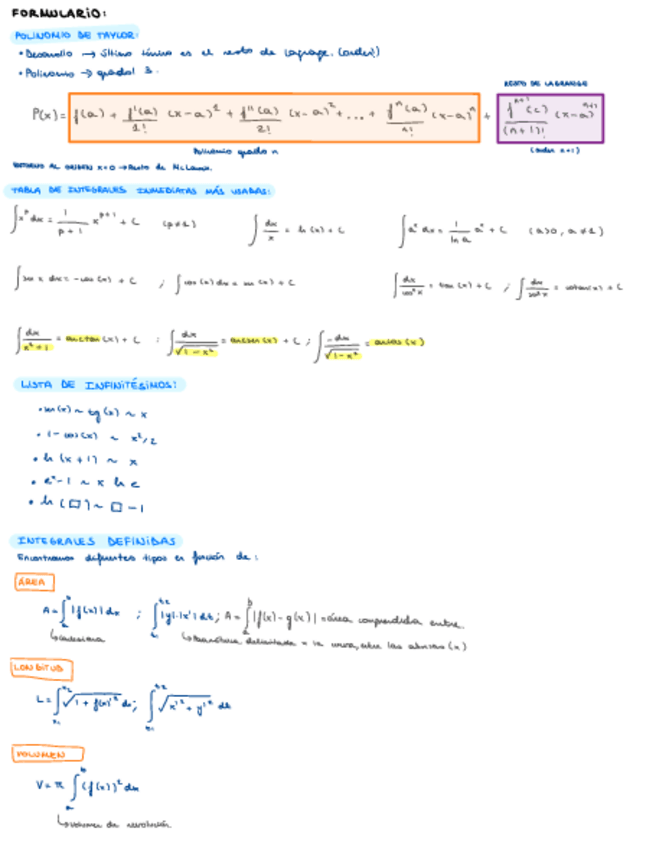 FORMULARIO:
POLINOMIO DE TAYLOR:
• Desarrollo → último término es el resto de Lagrange. (orden?)
• Polinomio → grado 3.
RESTO DE LAGRANGE
P(x) = f(a) + f'(a)/1! (x-a)^1 + f''(a)/2! (x-a)^2 + ... + f^n(a)/n! (x-a)^n + f^{n+1}(c)/(n+1)! (x-a)^{n+1}
Polinomio grado n (orden n+1)
ENTORNO AL ORIGEN x=0 → Resto de McLaurin.
TABLA DE INTEGRALES INMEDIATAS MÁS USADAS:
∫x^p dx = 1/(p+1) x^{p+1} + C (p≠1) ∫dx/x = ln(x) + C ∫a^x dx = 1/ln a a^x + C (a>0, a≠1)
∫sen x dx = -cos(x) + C ; ∫cos(x) dx = sen(x) + C ∫dx/cos²x = tan(x) + C ; ∫dx/sen²x = cotan(x) + C
∫dx/(x²+1) = arctan(x) + C ; ∫dx/√(1-x²) = arcsen(x) + C ; ∫-dx/√(1-x²) = arcos(x)
LISTA DE INFINITÉSIMOS:
• sen(x) ~ tg(x) ~ x
• 1-cos(x) ~ x²/2
• ln(x+1) ~ x
• e^x-1 ~ x ln e
• ln(□) ~ □-1
INTEGRALES DEFINIDAS
Encontramos diferentes tipos en función de:
ÁREA
A = ∫_a^b |f(x)| dx ; ∫_{t1}^{t2} |y|·|x'| dt ; A = ∫_a^b |f(x)-g(x)| = área comprendida entre
↳cartesiana ↳ delimitada = la curva, entre las abscisas (x)
LONGITUD
L = ∫_{x1}^{x2} √(1+f(x)'²) dx; ∫_{t1}^{t2} √(x'²+y'²) dt
VOLUMEN
V = π ∫_a^b (f(x))² dx
↳volumen de revolución.